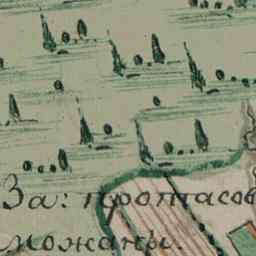 За: протасов
можаны.